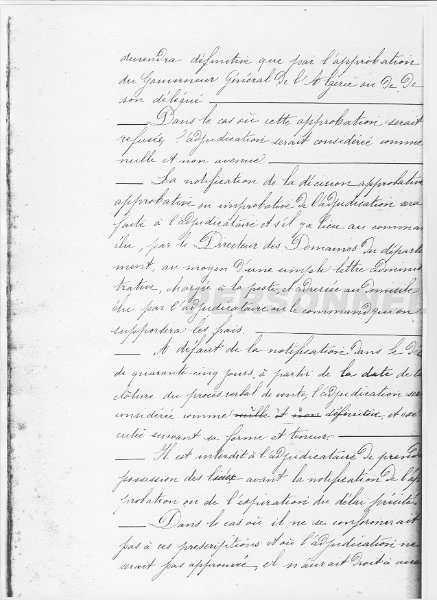 deviendra définitive que par l'approbation
du Gouverneur Général de l'Algérie ou de
son délégué
Dans le cas où cette approbation serait
refusée, l'adjudication serait considérée comme
nulle et non avenue.
La notification de la décision approbative
approbative ou improbative de l'adjudication sera
faite à l'adjudicataire et s'il y a lieu au comman
dé, par le Directeur des Domaines du départe
ment, au moyen d'une simple lettre administ
trative, chargée à la poste et adressée au domicile
élu par l'adjudicataire ou le command qui en
supportera les frais.
A défaut de la notification dans le dél
de quarante-cinq jours, à partir de la date de la
clôture du procès verbal de vente, l'adjudication ser
considérée comme nulle et non définitive, et exé
cutée suivant sa forme et teneur.
Il est interdit à l'adjudicataire de prend
possession des lieux avant la notification de l'ap
probation ou de l'expiration du délai précité
Dans le cas où il ne se conformerait
pas à ces prescriptions et où l'adjudication ne
serait pas approuvée, il n'aurait droit à aucu
PERSONNEL